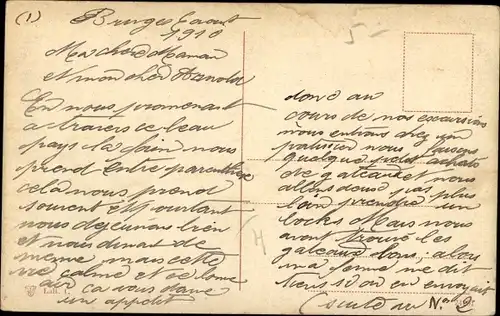 (1) Bruges 6 août
1910
Ma chère Maman
et mon cher Arnold
En nous promenant
à travers ce beau
pays la faim nous
prend Entre parenthèse
cela nous prend
souvent Et pourtant
nous dejeunons bien
et nous dinons de
meme mais cette
vie calme et
air ça vous donne
un appetit
donc au
cours de nos excursions
nous entrons chez un
patissier nous faisons
quelque petit achats
de gateaux et nous
allons dans pas plus
loin prendre un
bocks Mais nous
avons trouvé les
gateaux doux; alors
ma femme me dit
tiens si on en envoyait
(suite au No 2)